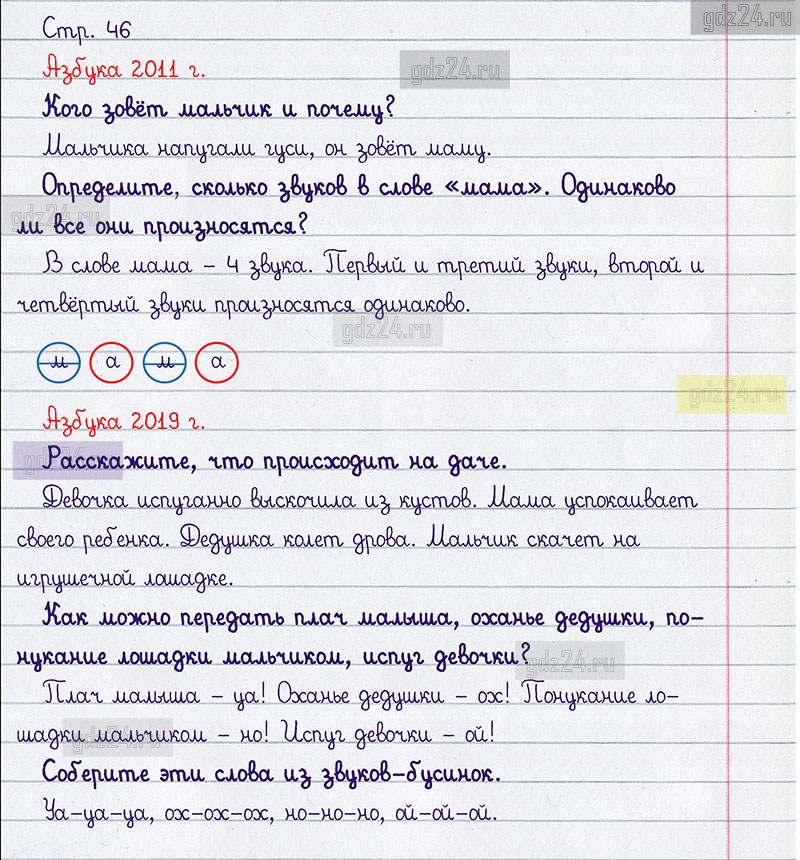 gdz24.ru
Стр. 46
Азбука 2011 г.
gdz24.ru
Кого зовёт мальчик и почему?
Мальчика напугали гуси, он зовёт маму.
Определите, сколько звуков в слове «мама». Одинаково
gdz24.ru
ли все они произносятся?
В слове мама – 4 звука. Первый и третий звуки, второй и
четвёртый звуки произносятся одинаково.
gdz24.ru
м а м а
gdz24.ru
Азбука 2019 г.
gdz24.ru
Расскажите, что происходит на даче.
Девочка испуганно выскочила из кустов. Мама успокаивает
своего ребенка. Дедушка колет дрова. Мальчик скачет на
игрушечной лошадке.
Как можно передать плач малыша, оханье дедушки, по-
нукание лошадки мальчиком, испуг девочки?
gdz24.ru
Плач малыша – уа! Оханье дедушки – ох! Понукание ло-
шадки мальчиком – но! Испуг девочки – ой!
gdz24.ru
Соберите эти слова из звуков-бусинок.
Уа-уа-уа, ох-ох-ох, но-но-но, ой-ой-ой.